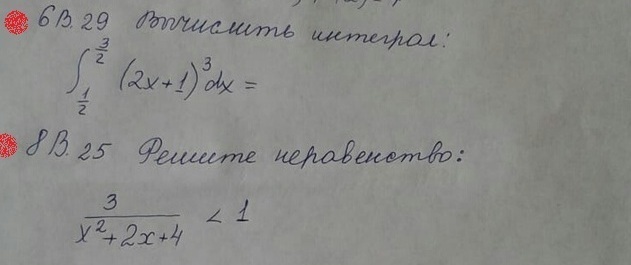 6В.29 Вычислить интеграл:
∫_{1/2}^{3/2} (2x+1)^3 dx =
8В.25 Решите неравенство:
3/(x^2+2x+4) < 1